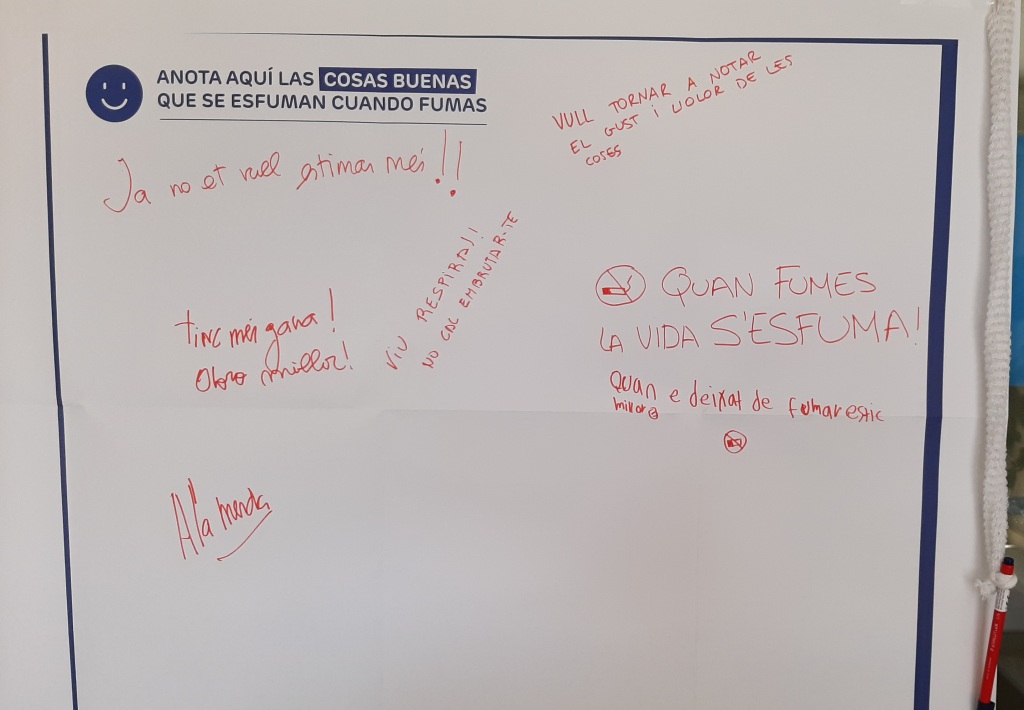 ANOTA AQUÍ LAS COSAS BUENAS
QUE SE ESFUMAN CUANDO FUMAS
VULL TORNAR A NOTAR
EL GUST i L'OLOR DE LES
COSES
Ja no et vull estimar més!!
VIU RESPIRA!!
NO CAL EMBRUTAR-TE
QUAN FUMES
LA VIDA S'ESFUMA!
tinc més gana!
Oloro millor!
Quan e deixat de fumar estic
millor
A la merda